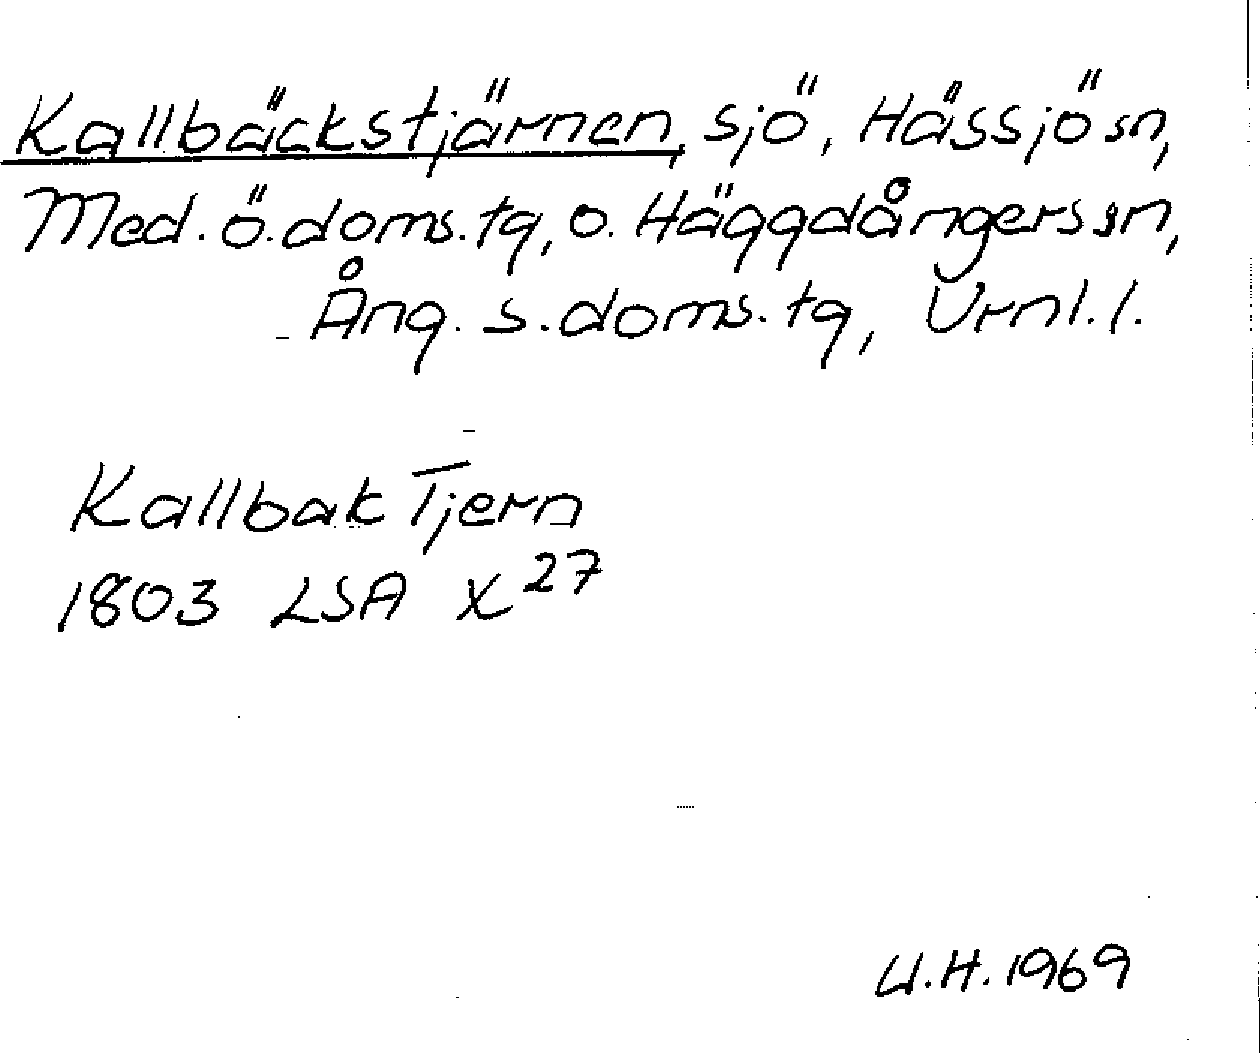 Kallbäckstjärnen, sjö, Hässjö sn,
Med. ö. doms. tg, o. Häggdångers sn,
Ång. s. doms. tg, Vrnl. l.
Kallbak Tjern
1803 LSA X 27
U.H. 1969